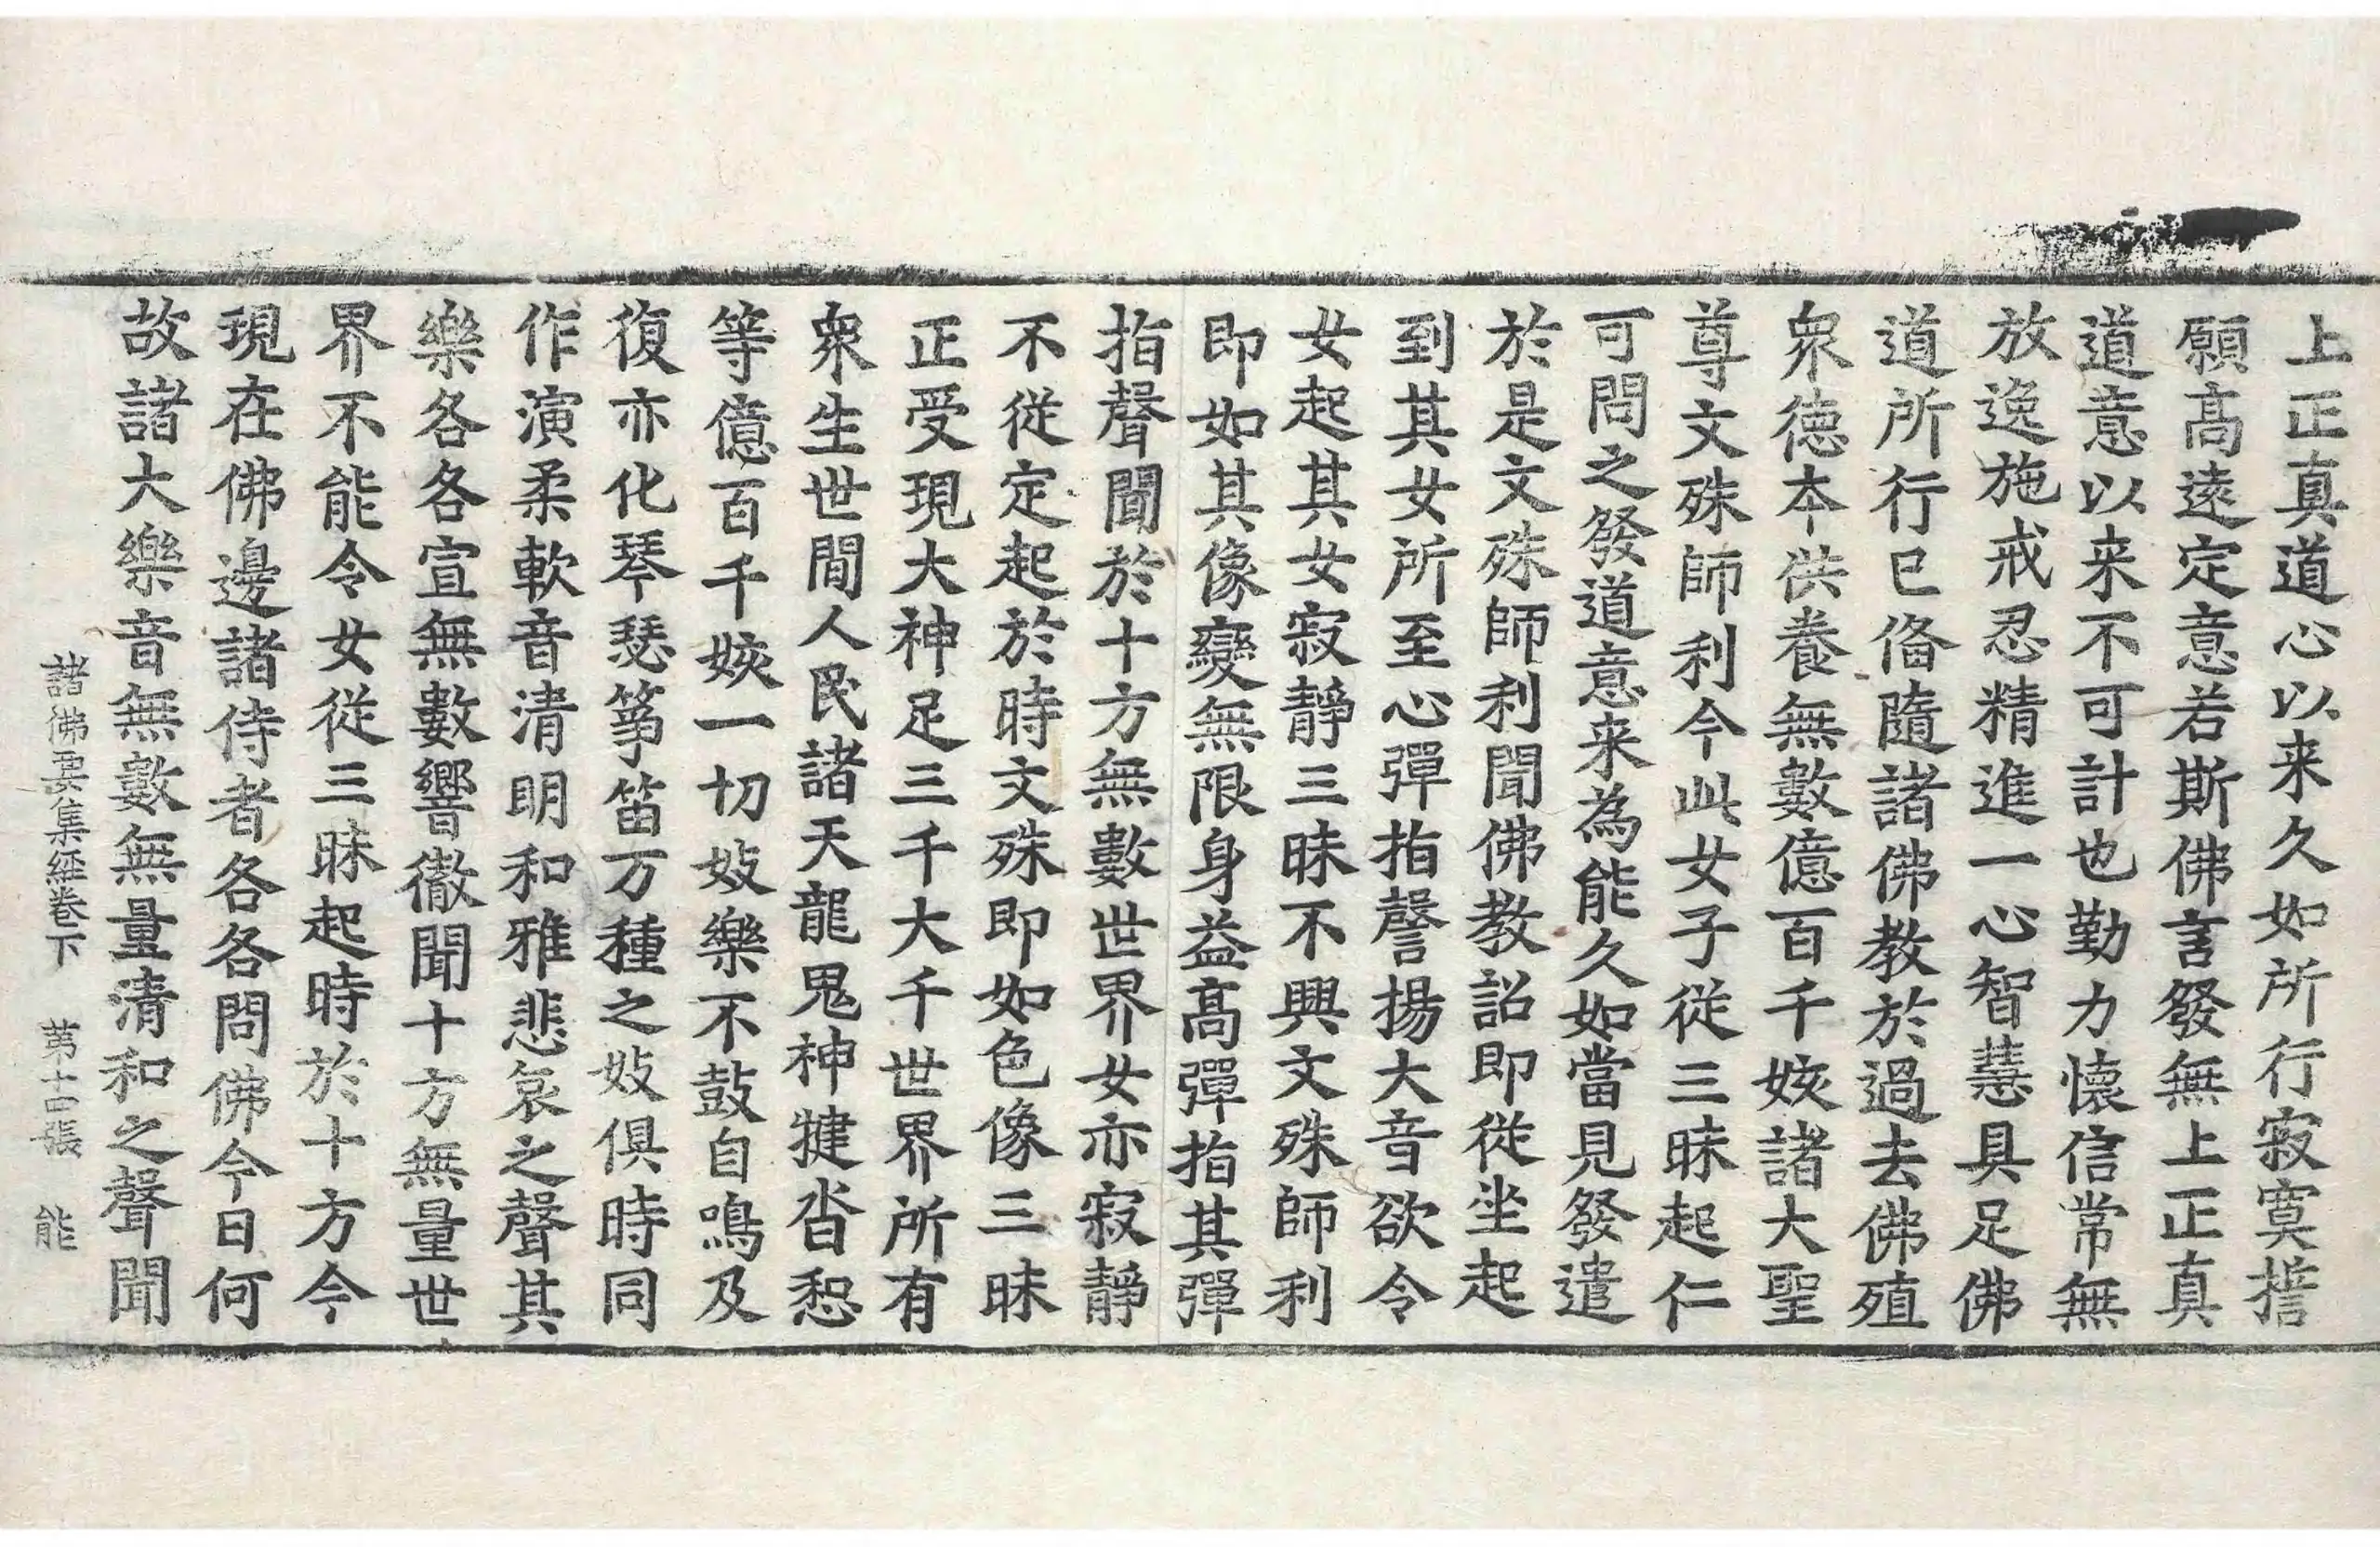 上正真道心以来久如所行寂寞誓
願髙遠定意若斯佛言發無上正真
道意以来不可計也勤力懷信常無
放逸施戒忍精進一心智慧具足佛
道所行已俻隨諸佛教於過去佛殖
衆徳本供養無數億百千姟諸大聖
尊文殊師利今此女子従三昧起仁
可問之發道意来為能久如當見發遣
於是文殊師利聞佛教詔即従坐起
到其女所至心彈指謦揚大音欲令
女起其女寂靜三昧不興文殊師利
即如其像變無限身益髙彈指其彈
指聲聞於十方無數世界女亦寂靜
不従定起於時文殊即如色像三昧
正受現大神足三千大千世界所有
衆生世間人民諸天龍鬼神揵沓惒
等億百千姟一切妓樂不鼓自鳴及
復亦化琴瑟箏笛万種之妓俱時同
作演柔軟音清明和雅悲哀之聲其
樂各各宣無數響徹聞十方無量世
界不能令女従三昧起時於十方今
現在佛邊諸侍者各各問佛今日何
故諸大樂音無數無量清和之聲聞
諸佛要集經卷下　第十四張　能